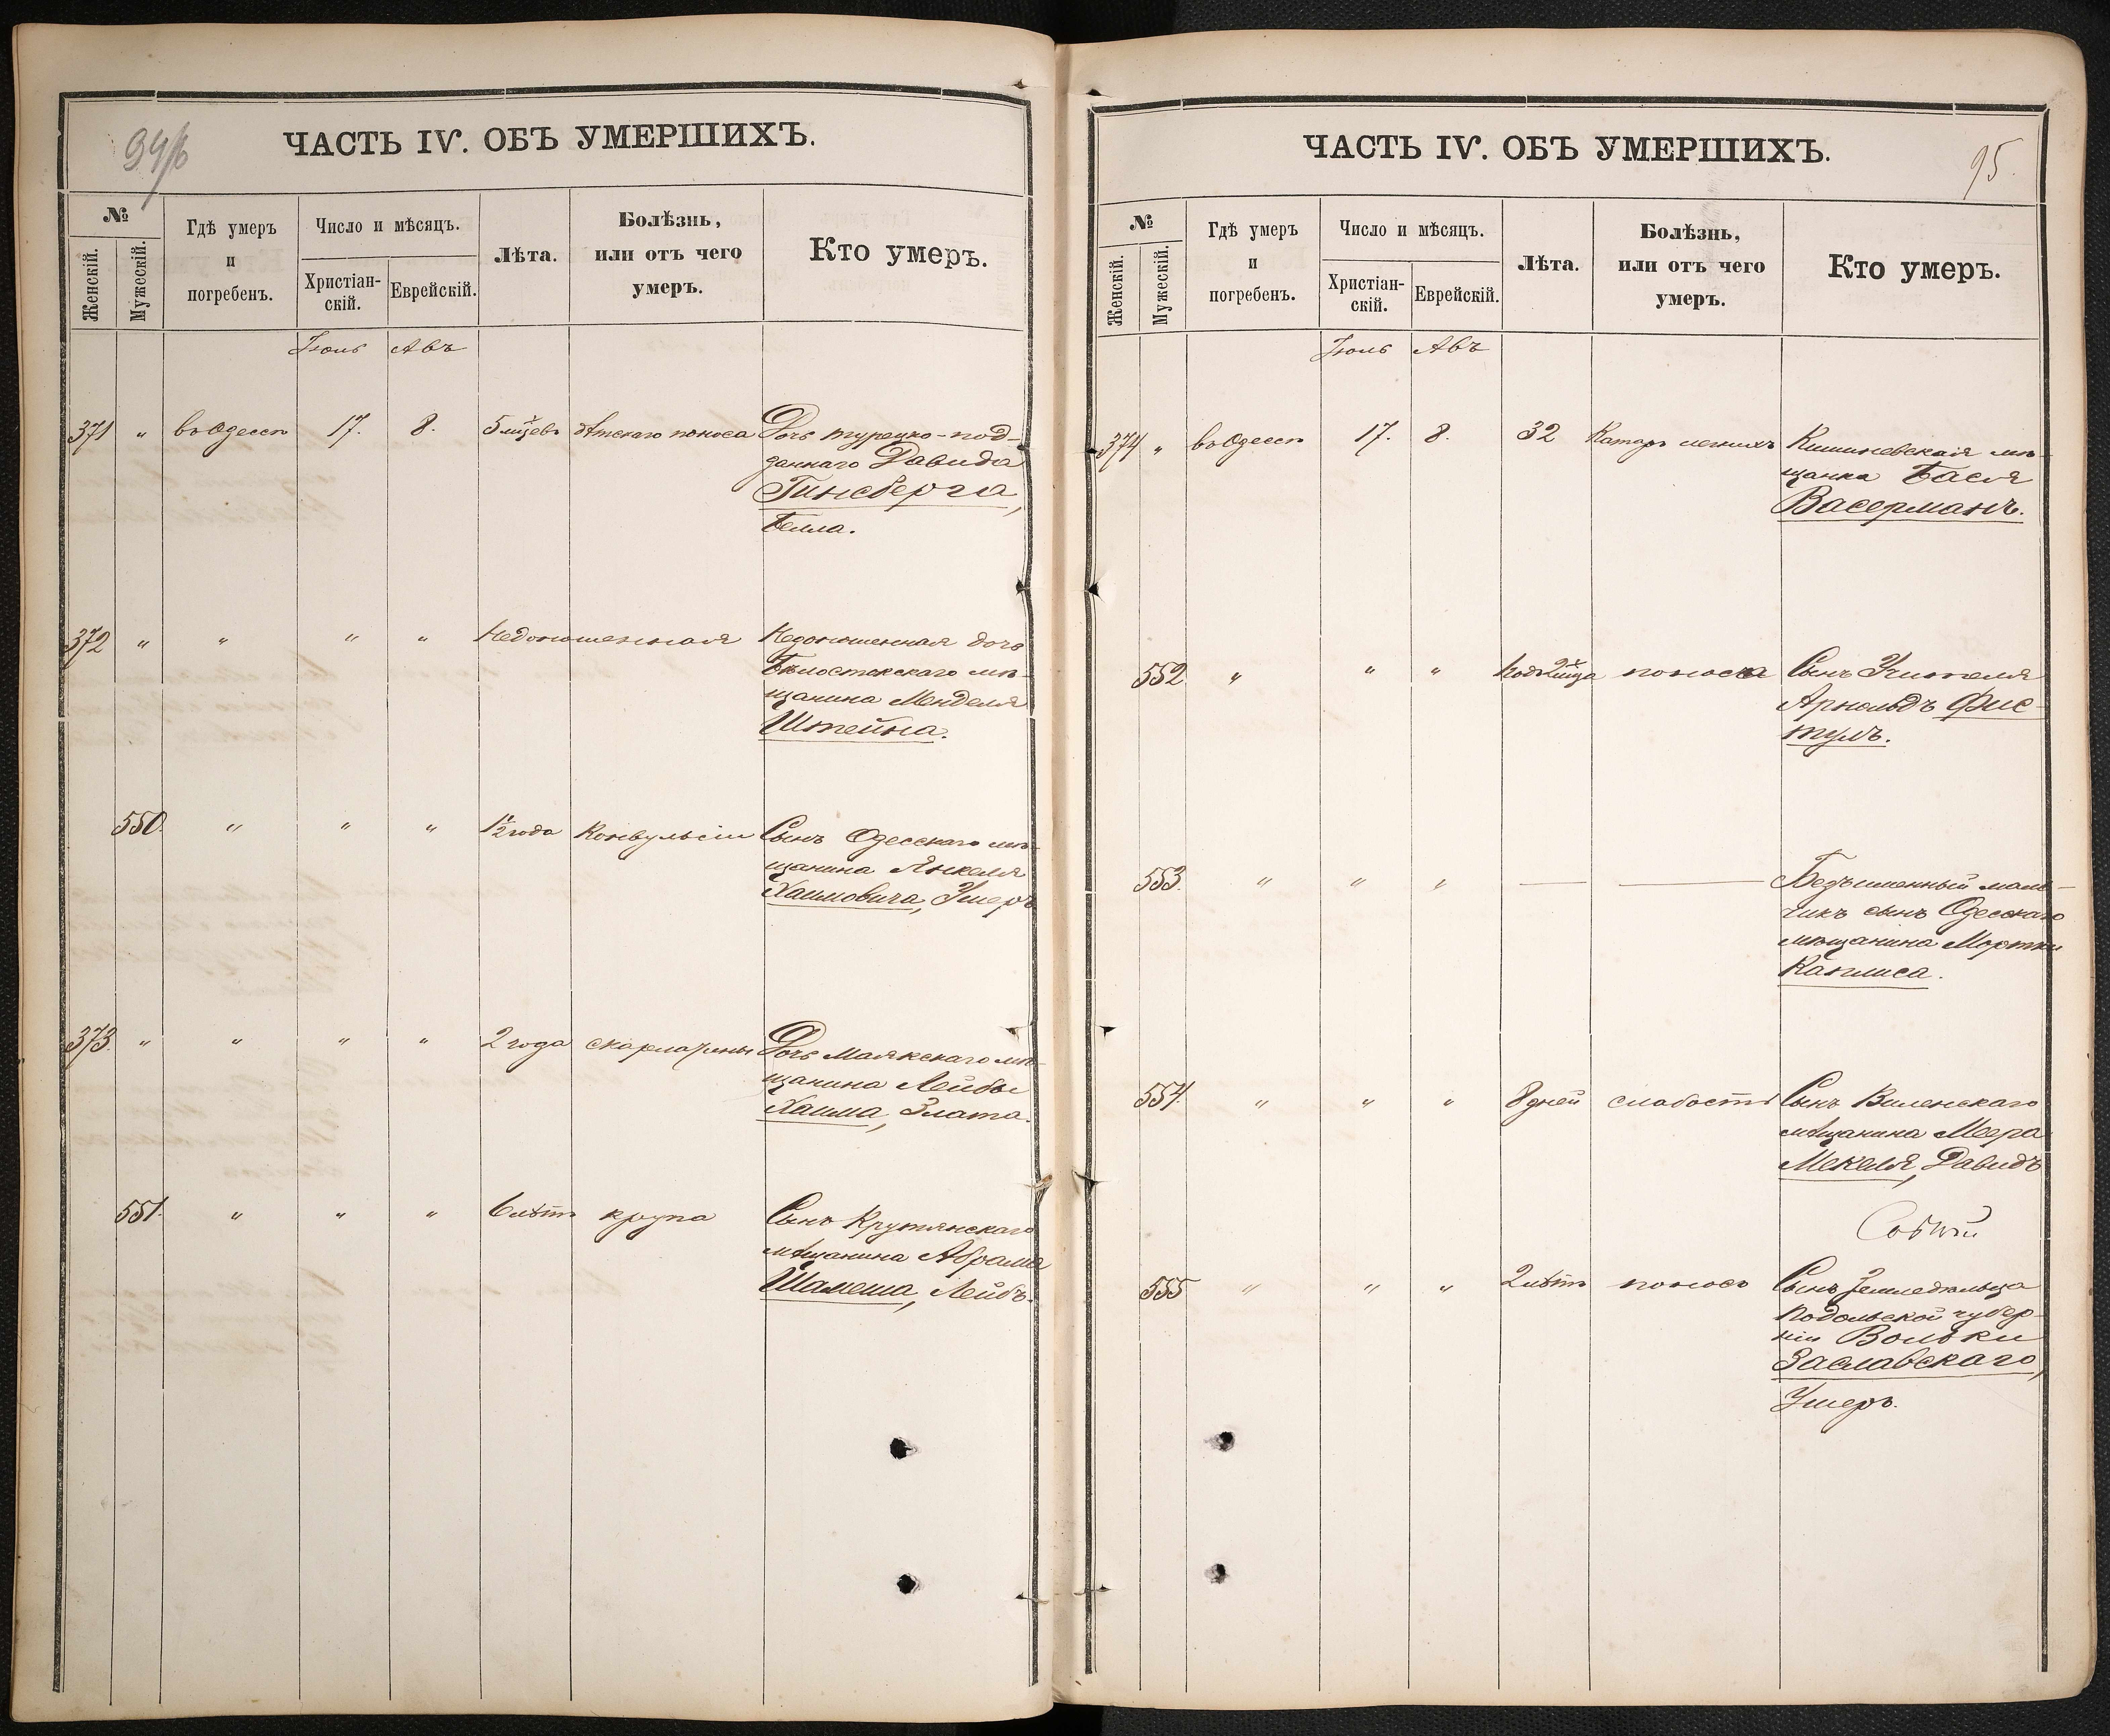 94/б
ЧАСТЬ IV. ОБЪ УМЕРШИХЪ.
№
Женскій.
Мужескій.
Гдѣ умеръ
и
погребенъ.
Число и мѣсяцъ.
Христіан-
скій.
Еврейскій.
Лѣта.
Болѣзнь,
или отъ чего
умеръ.
Кто умеръ.
Іюль Авъ
371 " въ Одессѣ 17. 8. 5 мцевъ дѣтскаго поноса Дочь турецко-под-
даннаго Давида
Гинсберга,
Белла.
372 " " " " Недоношенная Недоношенная дочь
Бѣлостокскаго мѣ-
щанина Менделя
Штейна.
550. " " " 1½ года Конвульсіи Сынъ Одесскаго мѣ-
щанина Янкеля
Хаимовича, Ушеръ
373. " " " " 2 года скарлатины Дочь Маякскаго мѣ-
щанина Лейбы
Хаима, Злата.
551. " " " 6 лѣтъ крупа Сынъ Крутянскаго
мѣщанина Абрама
Шамеша, Лейбъ.
ЧАСТЬ IV. ОБЪ УМЕРШИХЪ.
95.
№
Женскій.
Мужескій.
Гдѣ умеръ
и
погребенъ.
Число и мѣсяцъ.
Христіан-
скій.
Еврейскій.
Лѣта.
Болѣзнь,
или отъ чего
умеръ.
Кто умеръ.
Іюль Авъ
374 " въ Одессѣ 17. 8. 32 Катаръ легкихъ Кишиневская мѣ-
щанка Бася
Васерманъ.
552 " " " поноса Сынъ Учителя
Арнольдъ Фис-
тулъ.
553. " " " — — Безъименный маль-
чикъ сынъ Одесскаго
мѣщанина Мортки
Канлиса.
554. " " " 8 дней слабости Сынъ Виленскаго
мѣщанина Меера
Мекеля, Давидъ
555 " " " 2 лѣтъ поносъ Сынъ Земледѣльца
Подольской губер-
ніи Вольки
Заславскаго,
Ушеръ.